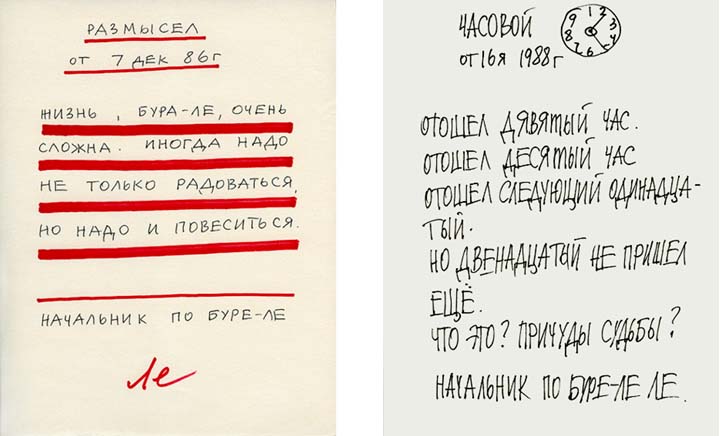 РАЗМЫСЕЛ
от 7 ДЕК 86г
ЖИЗНЬ , БУРА-ЛЕ, ОЧЕНЬ
СЛОЖНА. ИНОГДА НАДО
НЕ ТОЛЬКО РАДОВАТЬСЯ,
НО НАДО И ПОВЕСИТЬСЯ.
НАЧАЛЬНИК ПО БУРЕ-ЛЕ
Ле
ЧАСОВОЙ
от 16я 1988г
ОТОШЕЛ ДЯВЯТЫЙ ЧАС.
ОТОШЕЛ ДЕСЯТЫЙ ЧАС
ОТОШЕЛ СЛЕДУЮЩИЙ ОДИНАДЦА-
ТЫЙ.
НО ДВЕНАДЦАТЫЙ НЕ ПРИШЕЛ
ЕЩЁ.
ЧТО ЭТО? ПРИЧУДЫ СУДЬБЫ?
НАЧАЛЬНИК ПО БУРЕ-ЛЕ ЛЕ.